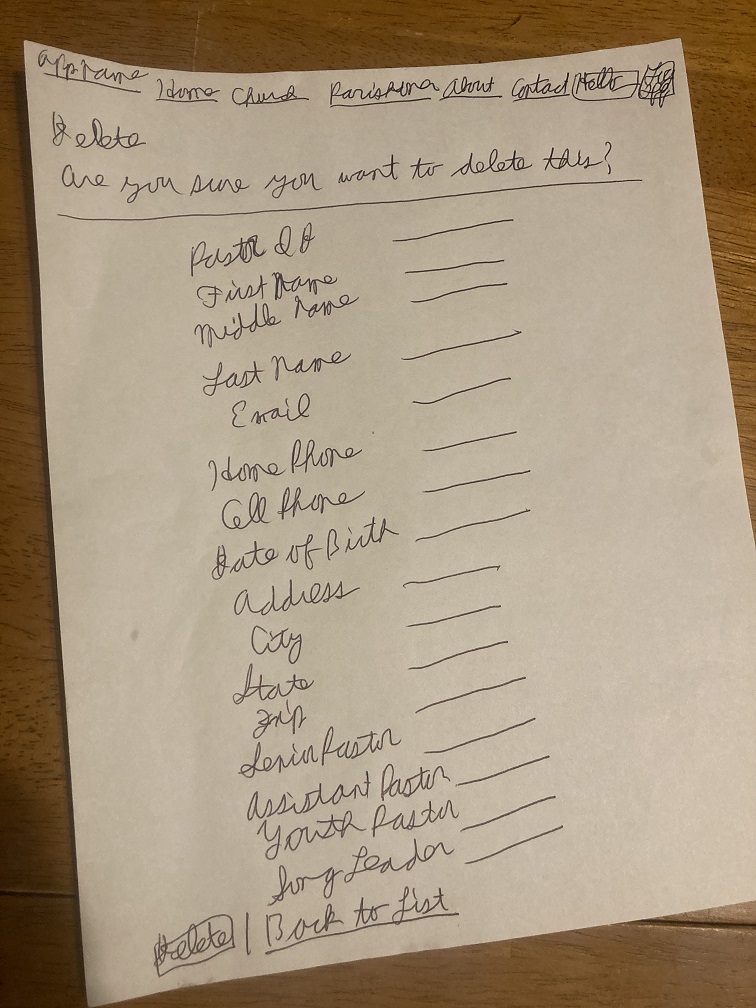 App name Home Church Parishioner About Contact Hello
Delete
Are you sure you want to delete this?
Pastor ID
First Name
Middle Name
Last Name
Email
Home Phone
Cell Phone
Date of Birth
Address
City
State
Zip
Senior Pastor
Assistant Pastor
Youth Pastor
Song Leader
Delete | Back to List